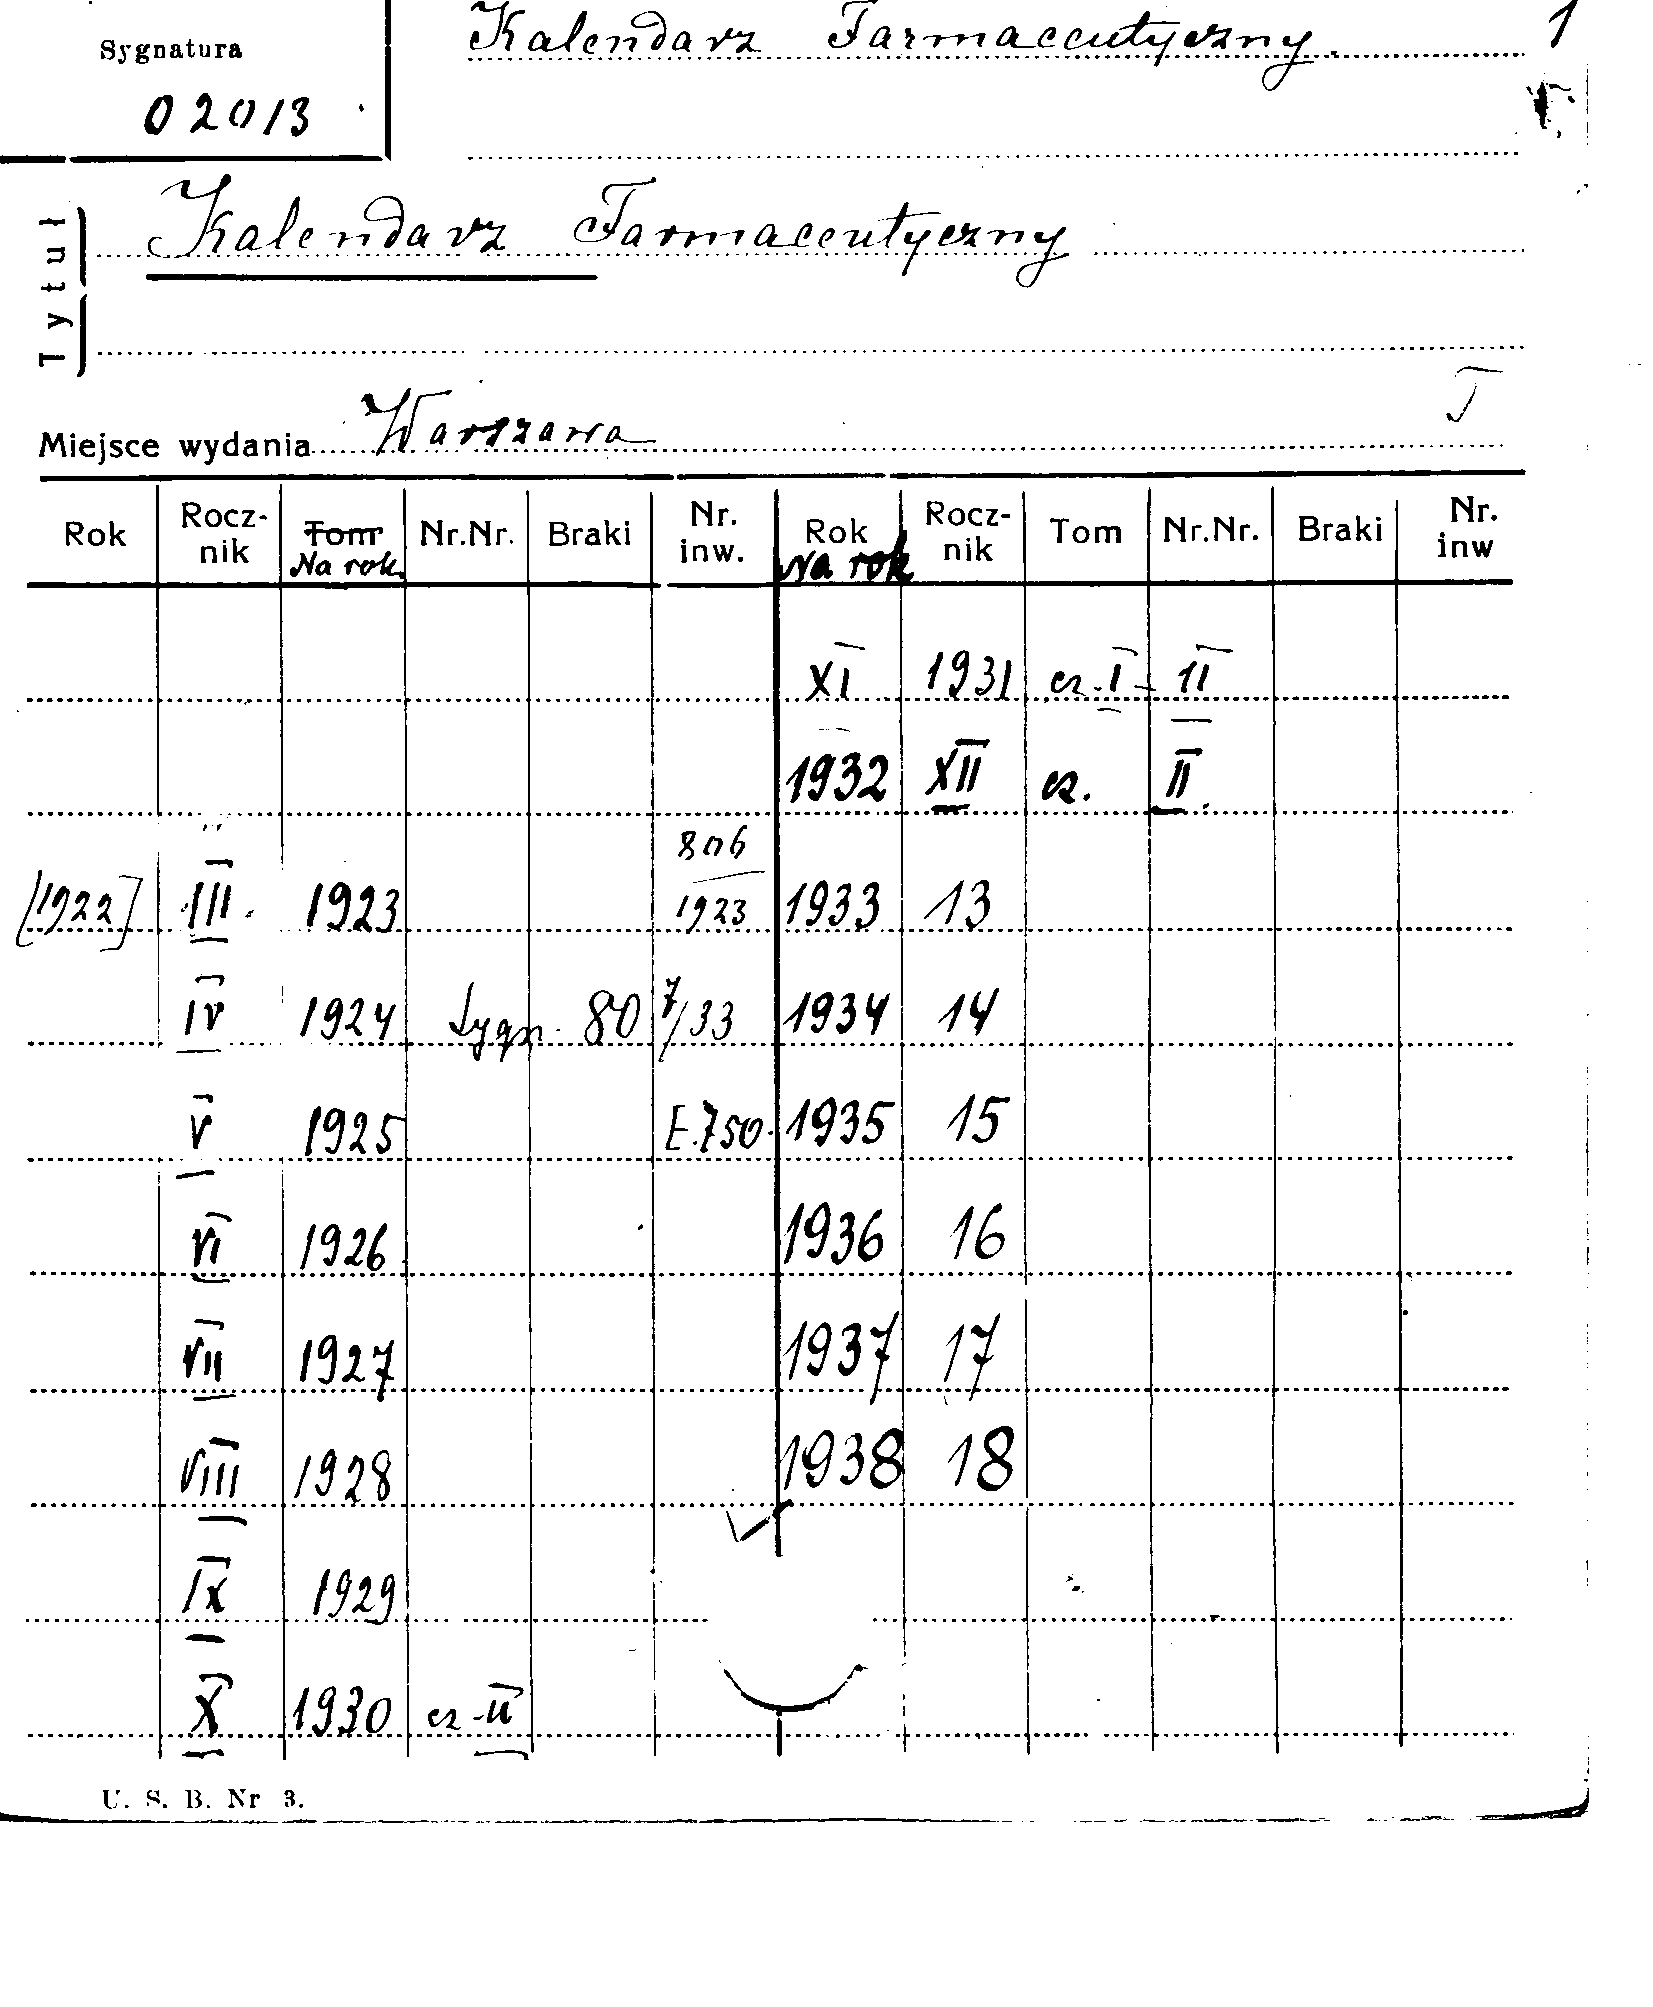 Sygnatura
02013
Kalendarz Farmaceutyczny. 1
Tytuł
Kalendarz Farmaceutyczny
T
Miejsce wydania Warszawa
Rok Rocz-nik Tom Na rok Nr.Nr. Braki Nr. inw. Rok Na rok Rocz-nik Tom Nr.Nr. Braki Nr. inw
XI 1931 cz. I - II
1932 XII cz. II.
[1922] III. 1923 806/1923 1933 13
IV 1924 Sygn. 807/33 1934 14
V 1925 E.750. 1935 15
VI 1926 1936 16
VII 1927 1937 17
VIII 1928 1938 18
IX 1929
X 1930 cz - II
U. S. B. Nr 3.